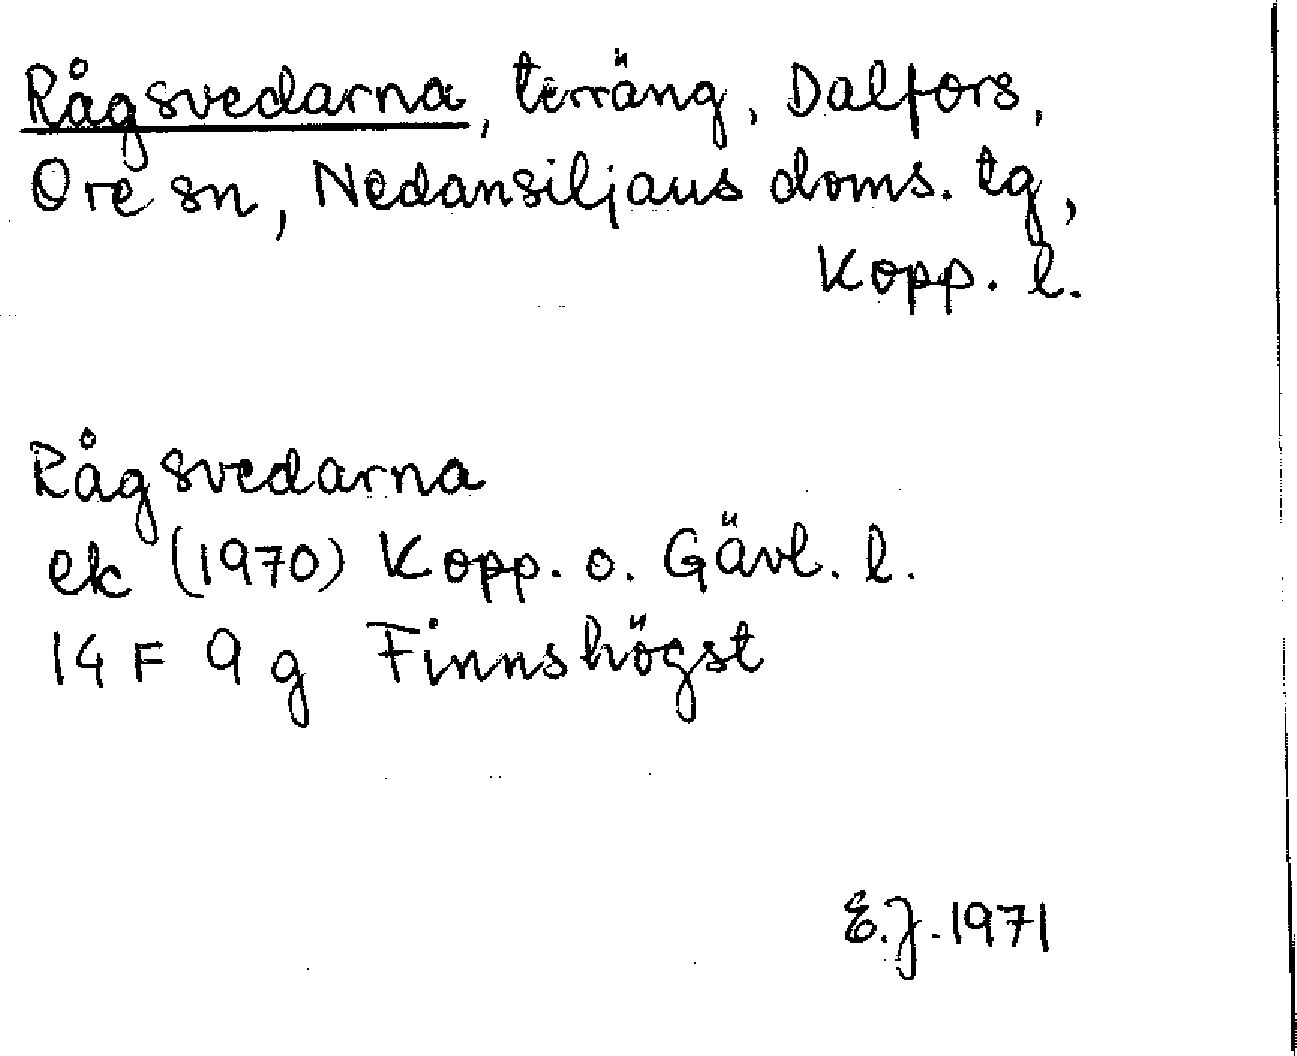 Rågsvedarna, terräng, Dalfors,
Ore sn, Nedansiljans doms. tg,
Kopp. l.
Rågsvedarna
ek (1970) Kopp. o. Gävl. l.
14 F 9 g Finnshögst
E.J. 1971